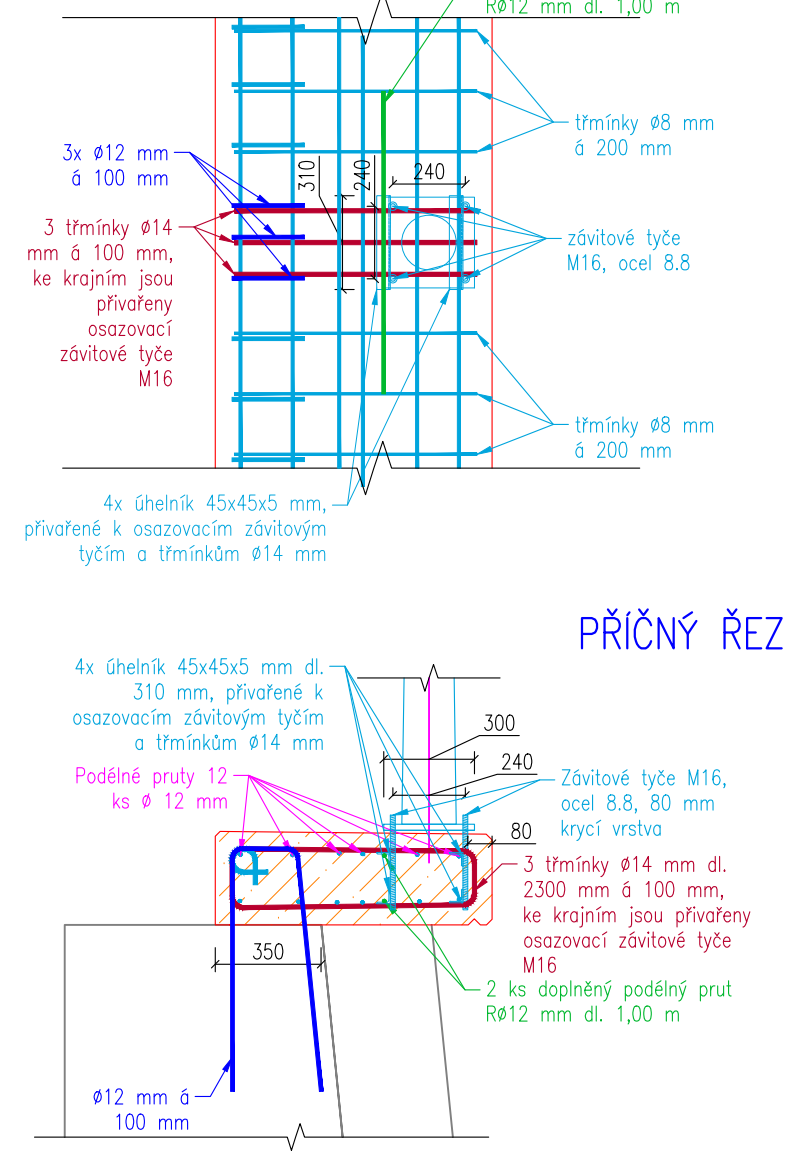 RØ12 mm dl. 1,00 m
třmínky Ø8 mm
á 200 mm
3x Ø12 mm
á 100 mm
310
240
240
3 třmínky Ø14
mm á 100 mm,
ke krajním jsou
přivařeny
osazovací
závitové tyče
M16
závitové tyče
M16, ocel 8.8
třmínky Ø8 mm
á 200 mm
4x úhelník 45x45x5 mm,
přivařené k osazovacím závitovým
tyčím a třmínkům Ø14 mm
PŘÍČNÝ ŘEZ
4x úhelník 45x45x5 mm dl.
310 mm, přivařené k
osazovacím závitovým tyčím
a třmínkům Ø14 mm
300
240
Podélné pruty 12
ks Ø 12 mm
Závitové tyče M16,
ocel 8.8, 80 mm
krycí vrstva
80
3 třmínky Ø14 mm dl.
2300 mm á 100 mm,
ke krajním jsou přivařeny
osazovací závitové tyče
M16
350
2 ks doplněný podélný prut
RØ12 mm dl. 1,00 m
Ø12 mm á
100 mm